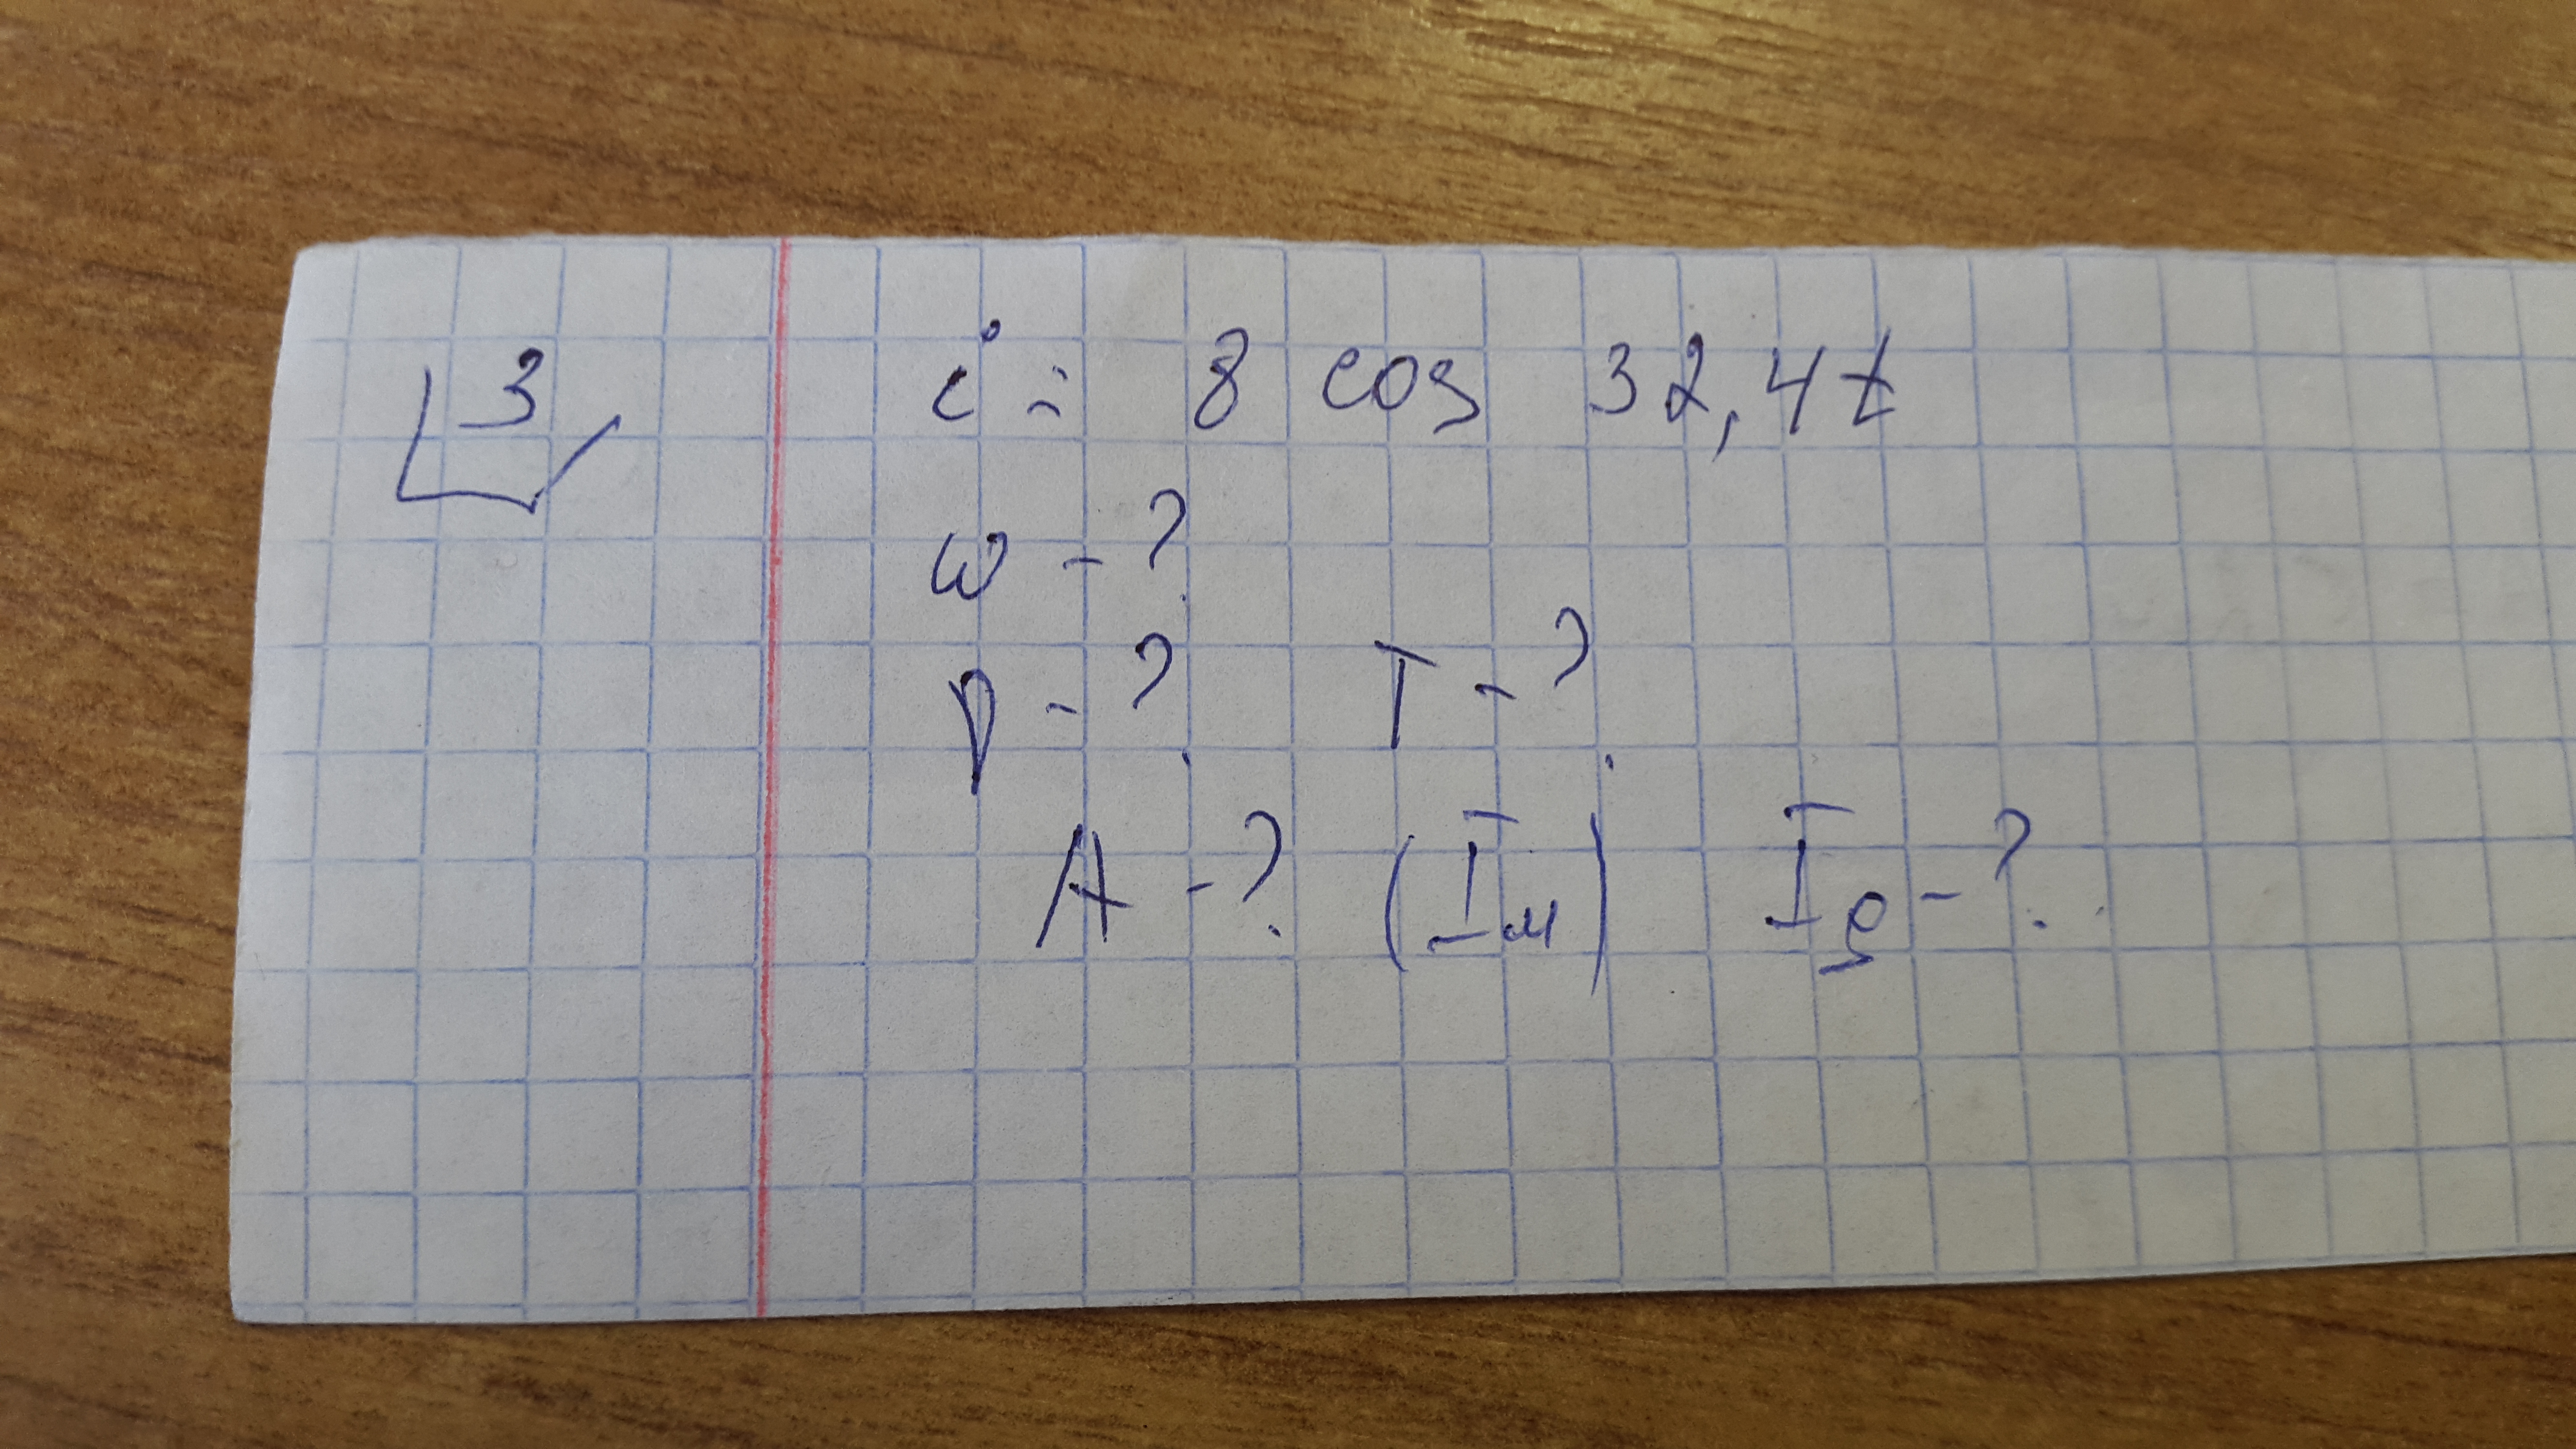 3 i = 8 cos 32,4t
ω - ?
ν - ? T - ?
A - ? (Iм) Iд - ?